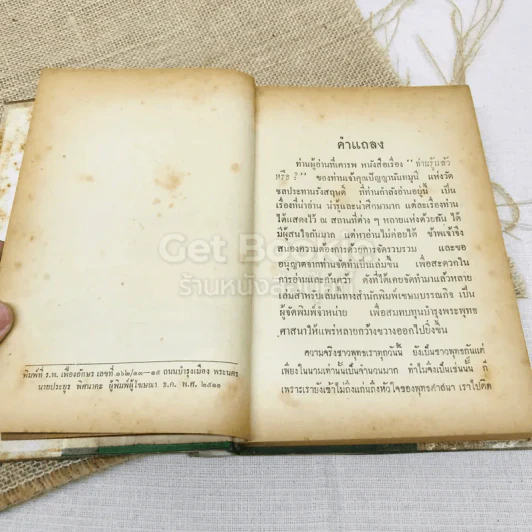 พิมพ์ที่ ร.พ. เฟื่องอักษร เลขที่ ๑๖๒/๑๓–๑๕ ถนนบำรุงเมือง พระนคร
นายประยูร พิศนาคะ ผู้พิมพ์ผู้โฆษณา ธ.ค. พ.ศ. ๒๕๑๑
คำแถลง
ท่านผู้อ่านที่เคารพ หนังสือเรื่อง " ท่านรู้แล้ว
หรือ ? " ของท่านเจ้าคุณปัญญานันทมุนี แห่งวัด
ชลประทานรังสฤษดิ์ ที่ท่านกำลังอ่านอยู่นี้ เป็น
เรื่องที่น่าอ่าน น่ารู้และน่าศึกษามาก แต่ละเรื่องท่าน
ได้แสดงไว้ ณ สถานที่ต่าง ๆ หลายแห่งด้วยกัน ได้
มีผู้สนใจกันมาก แต่หาอ่านไม่ค่อยได้ ข้าพเจ้าจึง
สนองความต้องการด้วยการจัดรวบรวม และขอ
อนุญาตจากท่านจัดทำเป็นเล่มขึ้น เพื่อสะดวกใน
การอ่านและค้นคว้า ดังที่ได้เคยจัดทำมาแล้วหลาย
เล่มสำหรับเล่มนี้ทางสำนักพิมพ์เขษมบรรณกิจ เป็น
ผู้จัดพิมพ์จำหน่าย เพื่อสมทบทุนบำรุงพระพุทธ
ศาสนาให้แพร่หลายกว้างขวางออกไปยิ่งขึ้น
ความจริงชาวพุทธเราทุกวันนี้ ยังเป็นชาวพุทธกันแต่
เพียงในนามเท่านั้นเป็นจำนวนมาก ทำไมจึงเป็นเช่นนั้น ก็
เพราะเรายังเข้าไม่ถึงแก่นถึงหัวใจของพุทธศาสนา เราไปติด
Get Books
ร้านหนังสือ